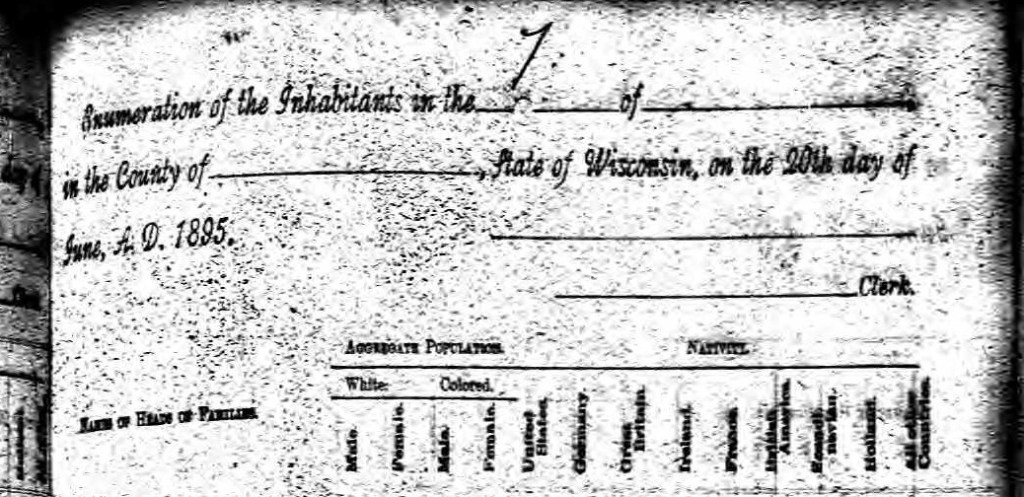 7.
Enumeration of the Inhabitants in the of
in the County of , State of Wisconsin, on the 20th day of
June, A. D. 1895.
Clerk.
AGGREGATE POPULATION. NATIVITY.
White. Colored.
NAMES OF HEADS OF FAMILIES.
Male.
Female.
Male.
Female.
United States.
Germany.
Great Britain.
Ireland.
France.
British America.
Scandinavian.
Holland.
All other Countries.